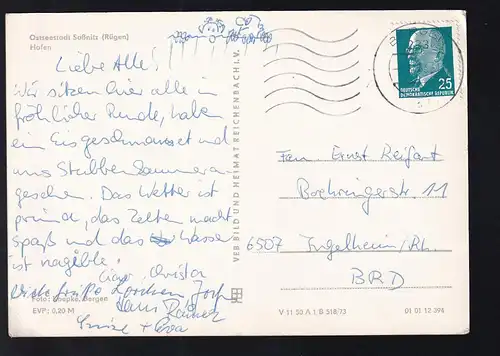 Ostseestadt Saßnitz (Rügen)
Hafen
Liebe Alle!
Wir sitzen hier alle in
fröhlicher Runde, haben
ein Eis geschmaust und
uns Stubbenkammer an-
gesehen. Das Wetter ist
prima, das Zelten macht
Spaß und das Wasser
ist
Viele Grüße
Hans
+ Eva
Foto: Knopke, Bergen
EVP: 0,20 M
VEB BILD UND HEIMAT REICHENBACH I. V.
25
DEUTSCHE
DEMOKRATISCHE REPUBLIK
Fam. Ernst Reifart
Boehringerstr. 11
6507 Ingelheim/Rh.
BRD
V 11 50 A 1/B 518/73
01 01 12 394